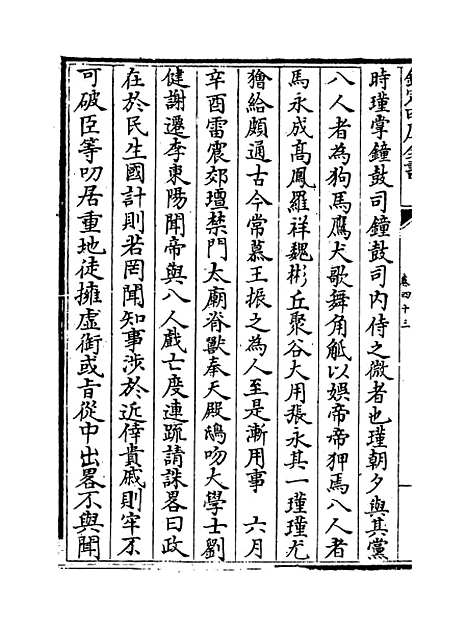 欽定四庫全書
卷四十三
時瑾掌鐘鼓司鐘鼓司内侍之微者也瑾朝夕與其黨
八人者為狗馬鷹犬歌舞角觝以娛帝帝狎焉八人者
馬永成高鳳羅祥魏彬丘聚谷大用張永其一瑾瑾尤
獪給頗通古今常慕王振之為人至是漸用事　六月
辛酉雷震郊壇禁門太廟脊獸奉天殿鴟吻大學士劉
健謝遷李東陽聞帝與八人戲亡度連疏請誅畧曰政
在於民生國計則若罔聞知事涉於近倖貴戚則牢不
可破臣等叨居重地徒擁虛銜或旨從中出畧不與聞